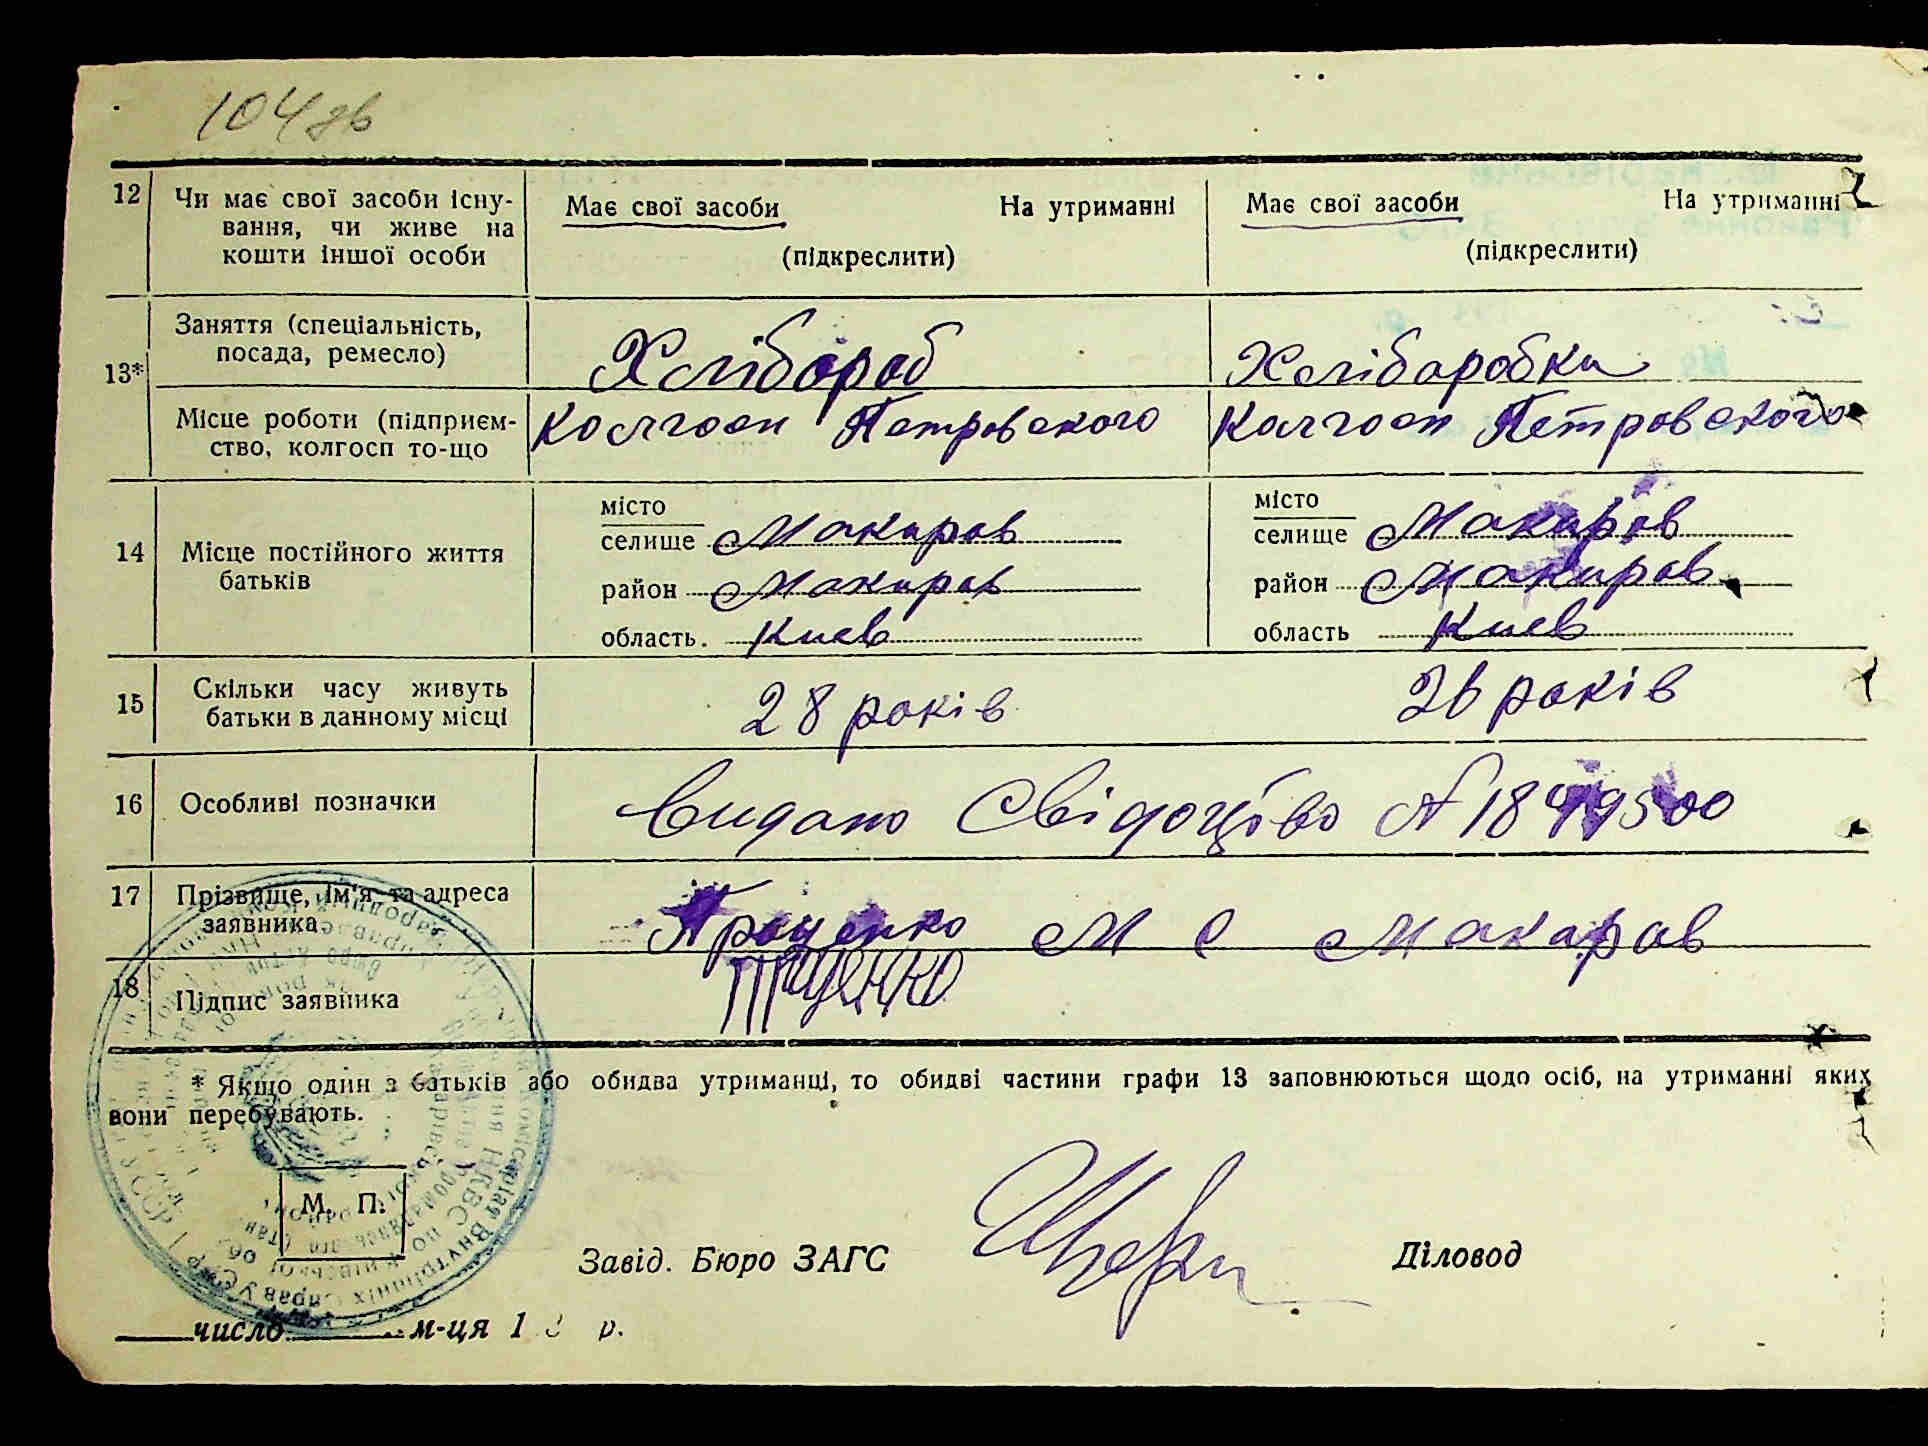 104зв
12 Чи має свої засоби існу- Має свої засоби На утриманні Має свої засоби На утриманні
вання, чи живе на (підкреслити) (підкреслити)
кошти іншої особи
13* Заняття (спеціальність, Хлібороб Хліборобка
посада, ремесло)
Місце роботи (підприєм- Колгосп Петровского Колгосп Петровского
ство, колгосп то-що
14 Місце постійного життя місто місто
батьків селище Макаров селище Макаров
район Макаров район Макаров
область. Киев область Киев
15 Скільки часу живуть 28 років 26 років
батьки в данному місці
16 Особливі позначки Видано Свідоцтво № 1849500
17 Прізвище, ім'я, та адреса Проценко М С Макаров
заявника
18 Підпис заявника Проценко
* Якщо один з батьків або обидва утриманці, то обидві частини графи 13 заповнюються щодо осіб, на утриманні яких
вони перебувають.
М. П.
Завід. Бюро ЗАГС Діловод
число м-ця 1 3 р.